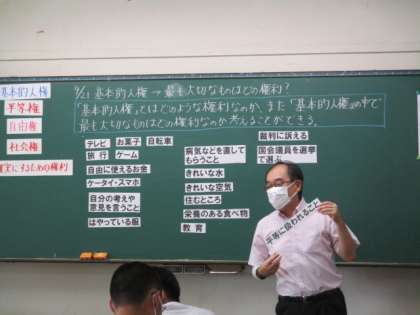 基本的人権
平等権
自由権
社会権
実にするための権利
9/21 基本的人権 → 最も大切なものはどの権利?
「基本的人権」とはどのような権利なのか、また「基本的人権」の中で
最も大切なものはどの権利なのか考えることができる。
テレビ
お菓子
自転車
旅行
ゲーム
自由に使えるお金
ケータイ・スマホ
自分の考えや
意見を言うこと
はやっている服
病気などを直して
もらうこと
きれいな水
きれいな空気
住むところ
栄養のある食べ物
教育
裁判に訴える
国会議員を選挙
で選ぶ
平等に扱われること